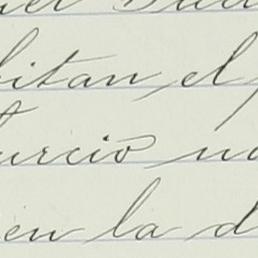 bitan el
urcio no
en la d